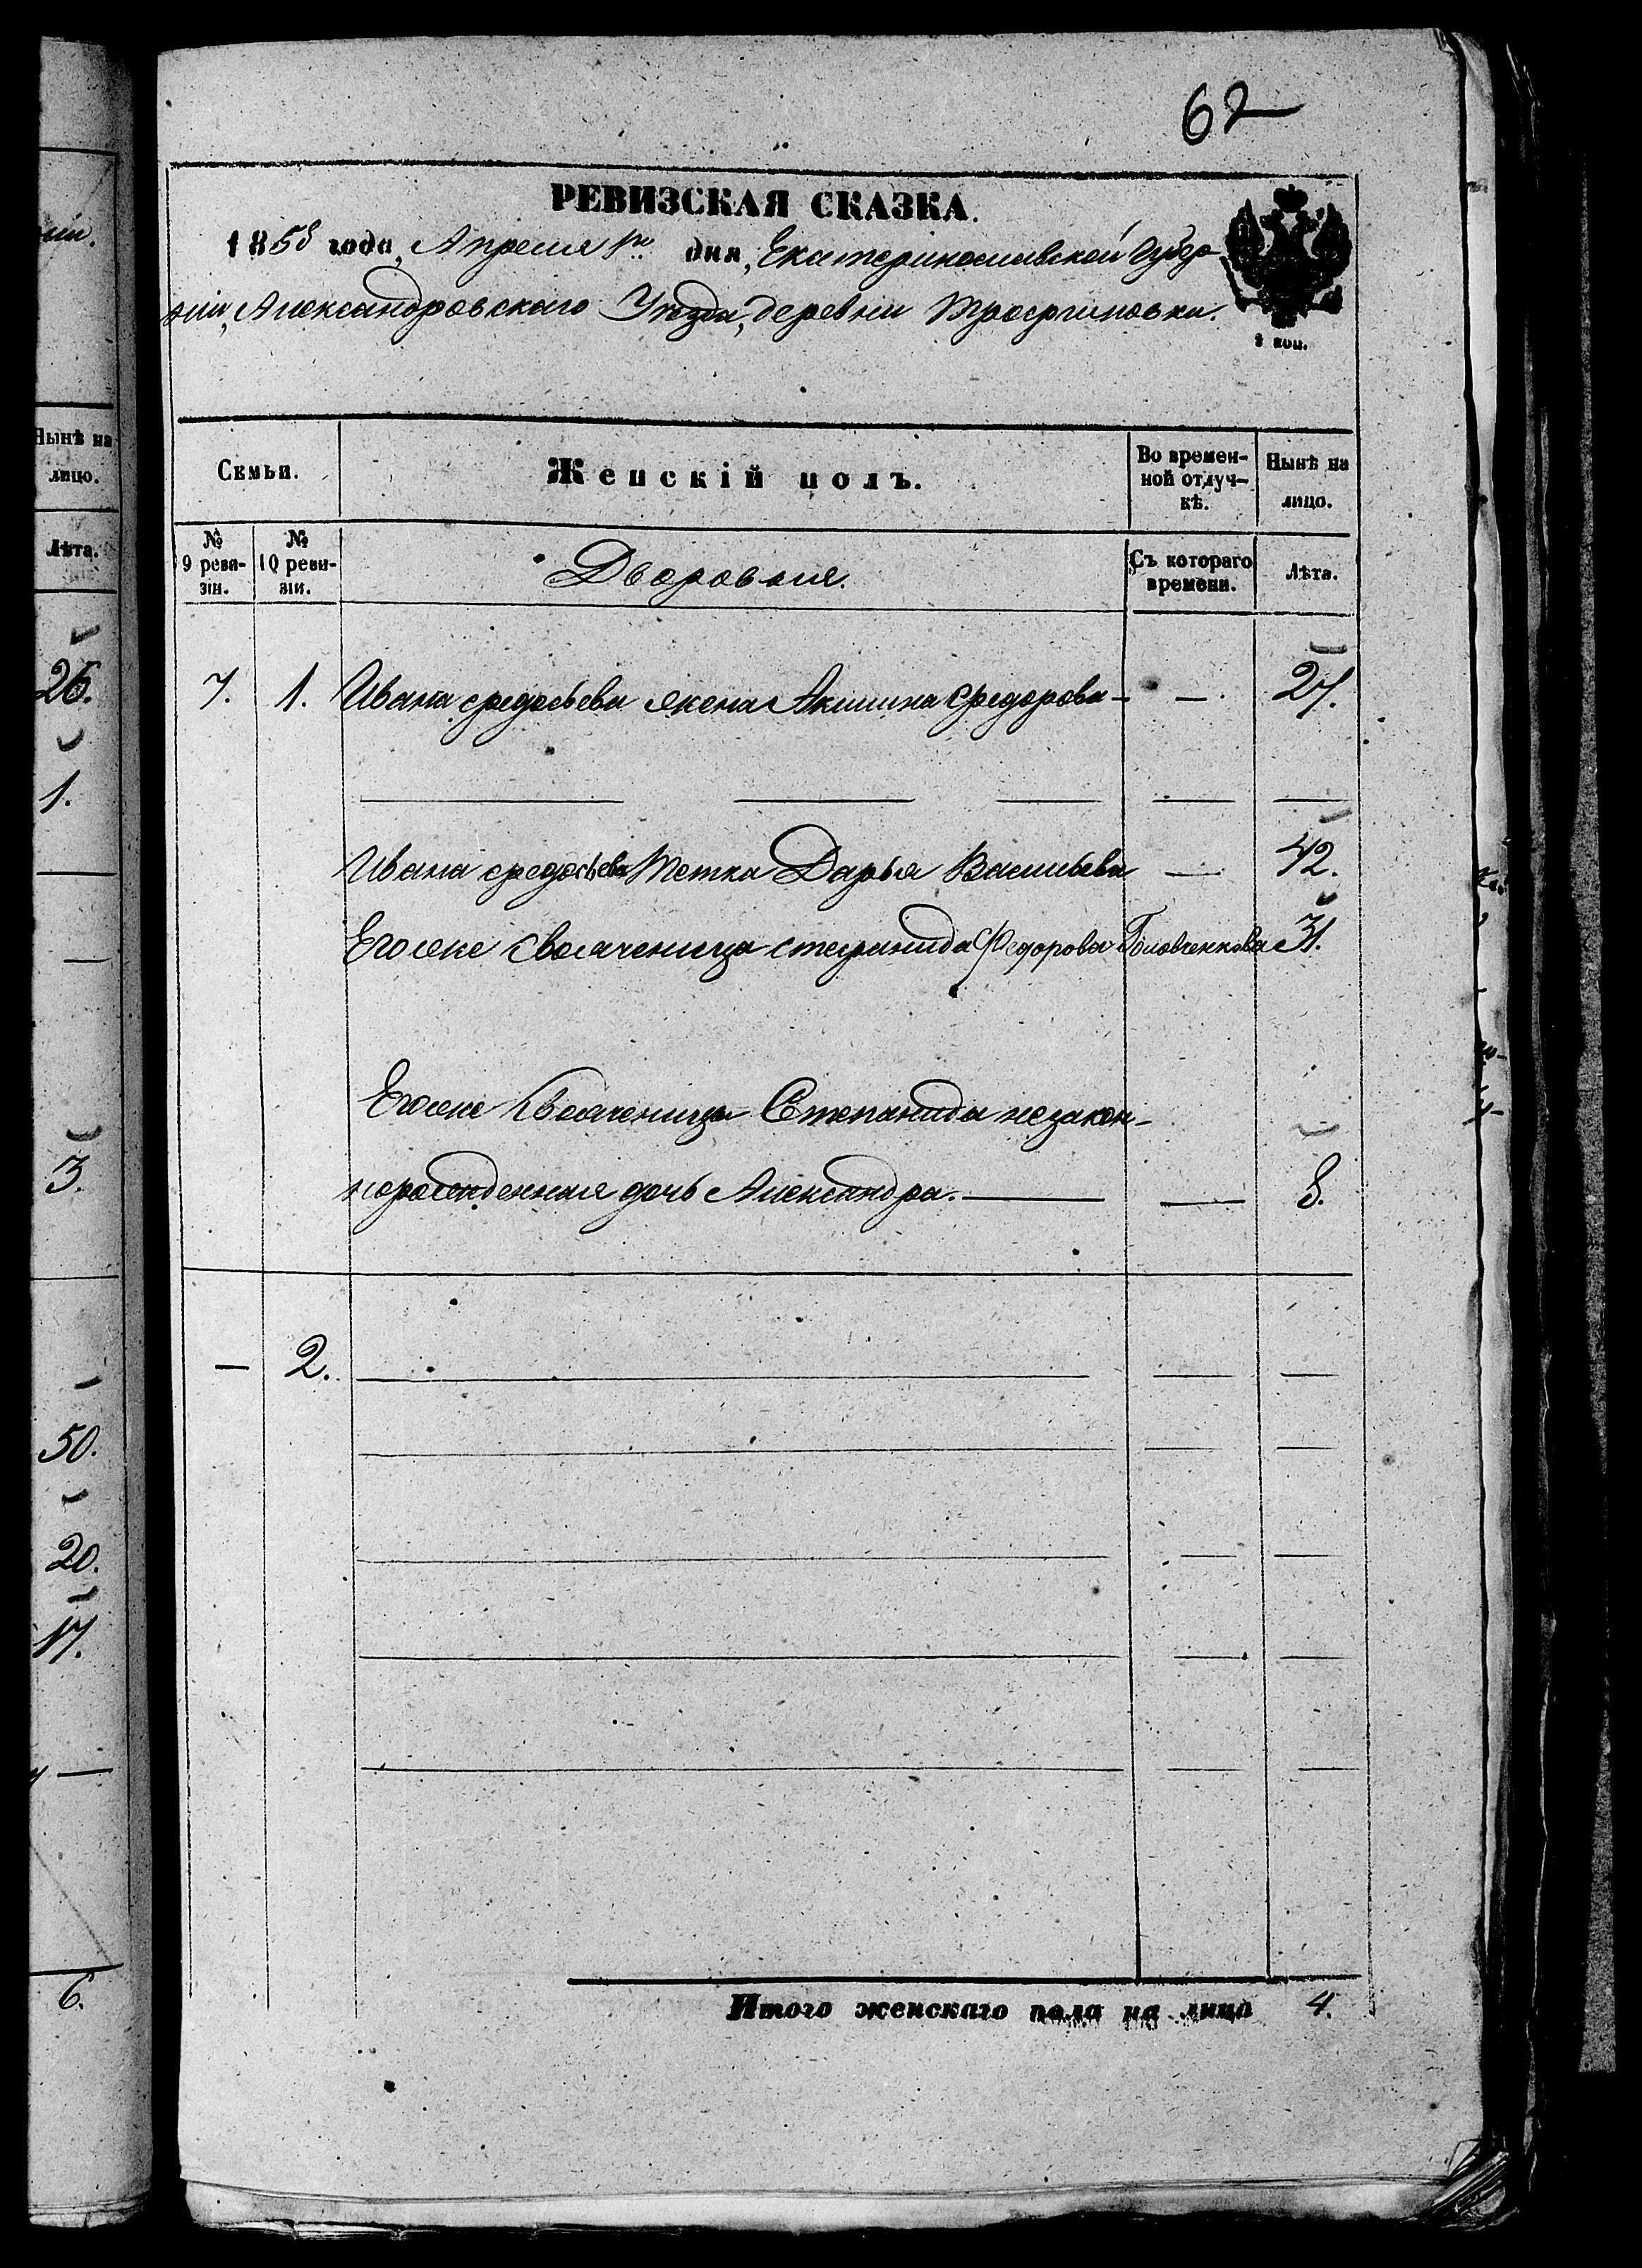 62
РЕВИЗСКАЯ СКАЗКА.
1858 года, Апреля 1го дня, Екатеринославской Губер-
нии, Александровскаго Уезда, деревни Трофимовки.
2 коп.
нии.
Нынѣ на
лицо.
Лѣта.
26.
1.
3.
50.
20.
17.
6.
Семьи.
Женскій полъ.
Во времен-
ной отлуч-
кѣ.
Нынѣ на
лицо.
№
9 реви-
зіи.
№
10 реви-
зіи.
Дворовые.
Съ котораго
времени.
Лѣта.
7. 1. Ивана Федосьева жена Акилина Федорова — — 27.
Ивана Федосьева Тетка Дарья Васильева — 42.
Его же Своячeница Стефанида Федорова Головченкова 31.
Его же Свояченицы Степаниды незакон-
норожденная дочь Александра. — — 8.
— 2.
Итого женскаго пола на лицо 4.